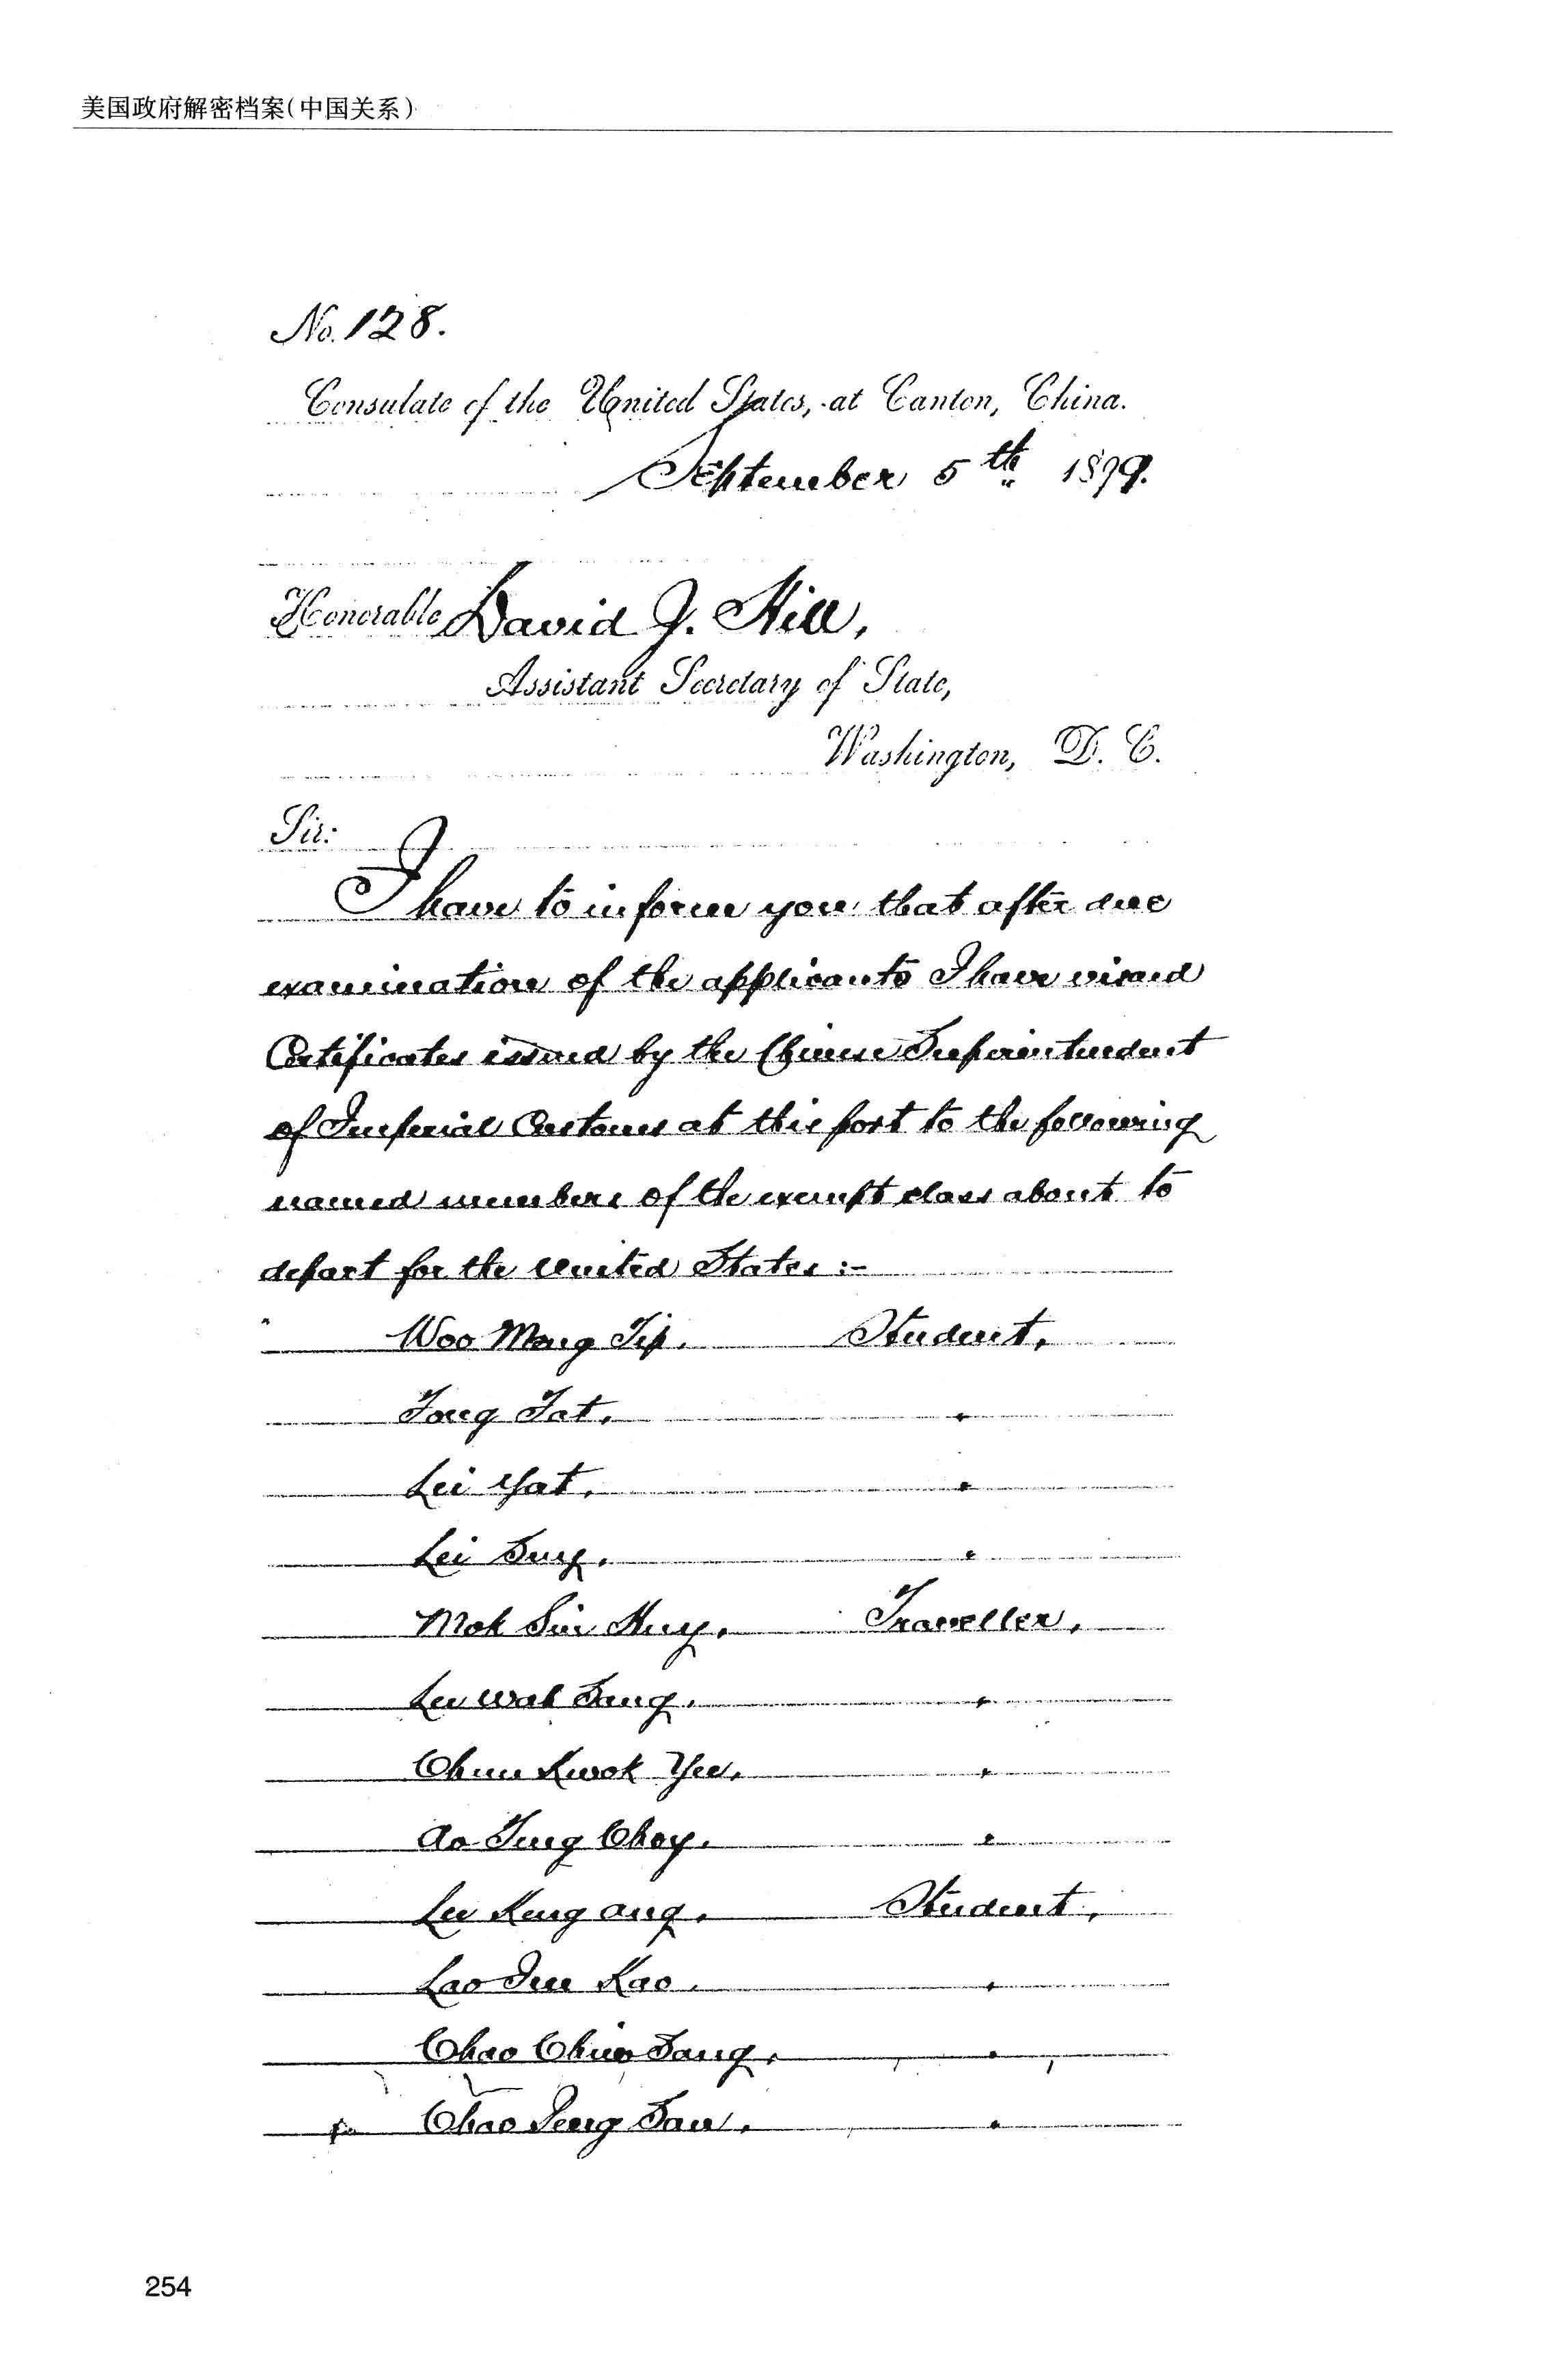 美国政府解密档案(中国关系)
No. 128.
Consulate of the United States, at Canton, China.
September 5th 1899.
Honorable David J. Hill,
Assistant Secretary of State,
Washington, D. C.
Sir:
I have to inform you that after due
examination of the applicants I have visaed
Certificates issued by the Chinese Superintendent
of Imperial Customs at this port to the following
named members of the exempt class about to
depart for the United States :-
Woo Mong Tip. Student,
Tong Tat, "
Lei Yat, "
Lei Sung, "
Mok Sin Huy, Traveller,
Lee Wah Sang, "
Chun Kwok Yee, "
Ao Tung Choy, "
Lee Keng Ang, Student,
Lao Kao, "
Chao Sang, "
Chao San, "
254